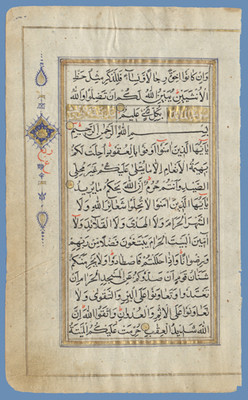 وَاِنْ كَانُوٓا اِخْوَةً رِجَالًا وَنِسَآءً فَلِلذَّكَرِ مِثْلُ حَظِّ
الْاُنْثَيَيْنِ يُبَيِّنُ اللّٰهُ لَكُمْ اَنْ تَضِلُّوا وَاللّٰهُ
بِكُلِّ شَيْءٍ عَلِيمٌ
بِسْمِ اللّٰهِ الرَّحْمٰنِ الرَّحِيمِ
يَآ اَيُّهَا الَّذِينَ اٰمَنُوٓا اَوْفُوا بِالْعُقُودِ اُحِلَّتْ لَكُمْ
بَهِيمَةُ الْاَنْعَامِ اِلَّا مَا يُتْلٰى عَلَيْكُمْ غَيْرَ مُحِلِّي
الصَّيْدِ وَاَنْتُمْ حُرُمٌ اِنَّ اللّٰهَ يَحْكُمُ مَا يُرِيدُ
يَآ اَيُّهَا الَّذِينَ اٰمَنُوا لَا تُحِلُّوا شَعَآئِرَ اللّٰهِ وَلَا
الشَّهْرَ الْحَرَامَ وَلَا الْهَدْيَ وَلَا الْقَلَآئِدَ وَلَآ
اٰمِّينَ الْبَيْتَ الْحَرَامَ يَبْتَغُونَ فَضْلًا مِنْ رَبِّهِمْ
وَرِضْوَانًا وَاِذَا حَلَلْتُمْ فَاصْطَادُوا وَلَا يَجْرِمَنَّكُمْ
شَنَاٰنُ قَوْمٍ اَنْ صَدُّوكُمْ عَنِ الْمَسْجِدِ الْحَرَامِ اَنْ
تَعْتَدُوا وَتَعَاوَنُوا عَلَى الْبِرِّ وَالتَّقْوٰى وَلَا
تَعَاوَنُوا عَلَى الْاِثْمِ وَالْعُدْوَانِ وَاتَّقُوا اللّٰهَ اِنَّ
اللّٰهَ شَدِيدُ الْعِقَابِ حُرِّمَتْ عَلَيْكُمُ الْمَيْتَةُ